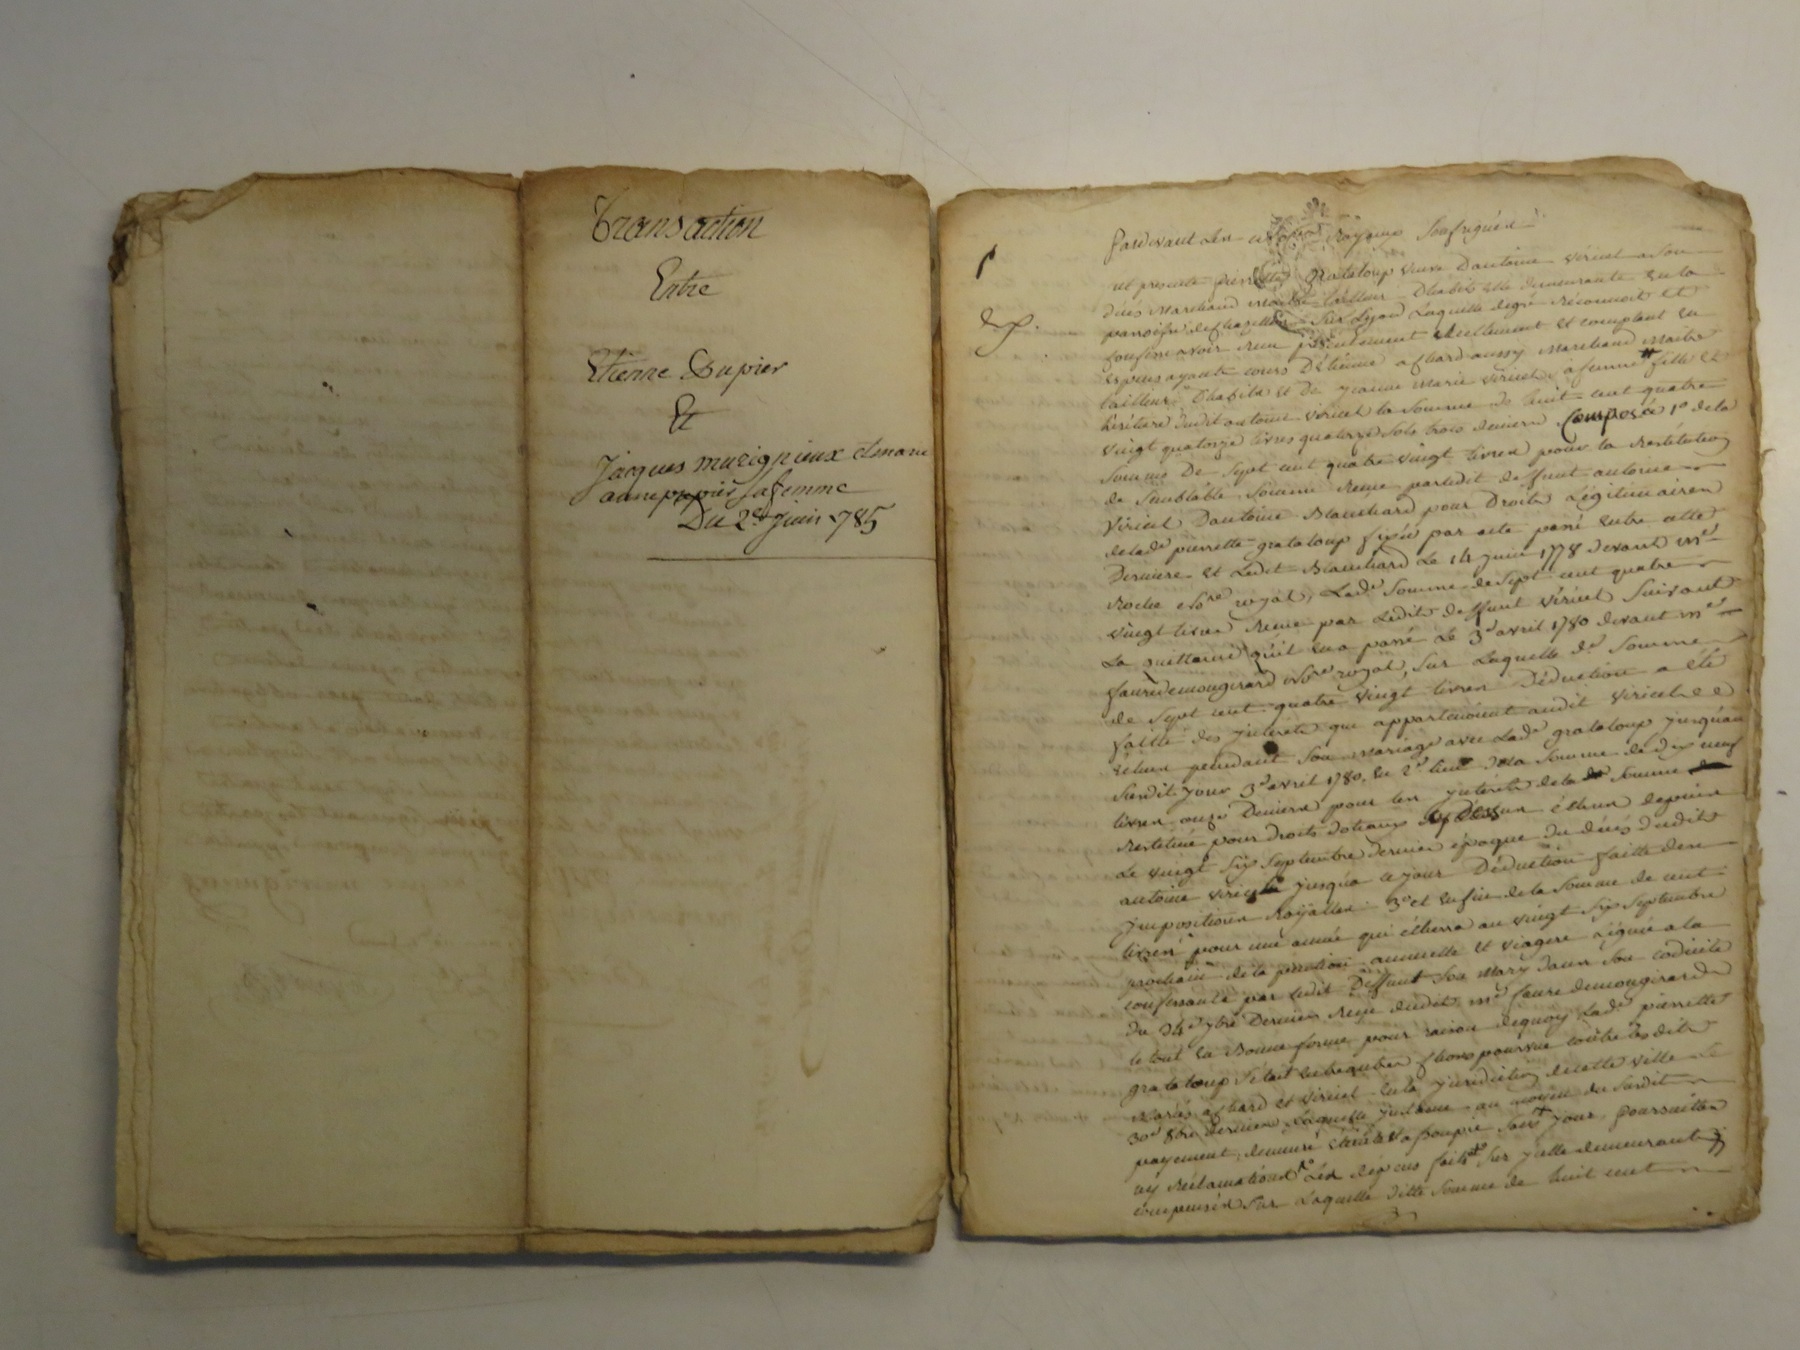 Transaction
Entre
Etienne Dupier
Et
Jacques murigneux etmarie
anne pupier sa femme
Du 2e juin 1785
Pardevant Les Royaux Soussignés
est presente pierrette grataloup veuve Dantoine viricel a son
déces Marchand maitre tailleur Dhabits elle demeurante en la
paroisse de chazelles sur Lyon Laquelle degré reconnoit et
confesse avoir reçu présentement réellement et comptant en
especes ayants cours D'étienne achard aussy Marchand maitre
tailleur Dhabits et de jeanne marie viricel sa femme fille et
héritière dudit antoine viricel la somme de huit cent quatre
vingt quatorze livres quatorze sols trois deniers Composée 1º de la
somme De sept cent quatre vingt livres pour la Restitution
de semblable somme Reçue par ledit deffunt antoine
viricel Dantoine Blanchard pour Droits Légitimaires
de lade pierrette grataloup fixés par acte passé entre cette
Derniere et Ledit Blanchard Le 14 juin 1778 devant me
Roche nore royal, Lade somme de sept cent quatre
vingt livres Reçue par Ledit deffunt viricel suivant
La quittance qu'il en a passé Le 3e avril 1780 devant me
faure demongirard nore royal, sur Laquelle de somme
de sept cent quatre vingt livres Déduction a été
faitte des jnterets qui appartenoient audit viricel
échus pendant son mariage avec Lade grataloup jusquau
susdit jour 3e avril 1780, en 2e lieu de la somme de dix neuf
livres onze Deniers pour les jnterets de la de somme
Restituée pour droits dotaux cy dessus échus depuis
Le vingt six septembre dernier époque du décés dudit
antoine viricel jusqua ce jour Déduction faitte des
jmpositions Royalles 3º et enfin de la somme de cent
livres pour une année qui écherra au vingt six septembre
prochain de la pension annuelle et viagere Léguée a la
confessante par ledit Deffunt son mary dans son codicile
du 24e 7bre Dernier Reçu dudit me faure demongirard
le tout en Bonne forme pour raison dequoy Lade pierrette
grataloup s'etoit pourvue contre lesdits
mariés achard et viricel en la juridiction de cette ville le
30e 8bre dernier Laquelle jnstance au moyen du susdit
payement demeure éteinte et assoupie sans pour poursuittes
ny réclamations Les dépens faits sur jcelle demeurants
compensés sur Laquelle ditte somme de huit cent